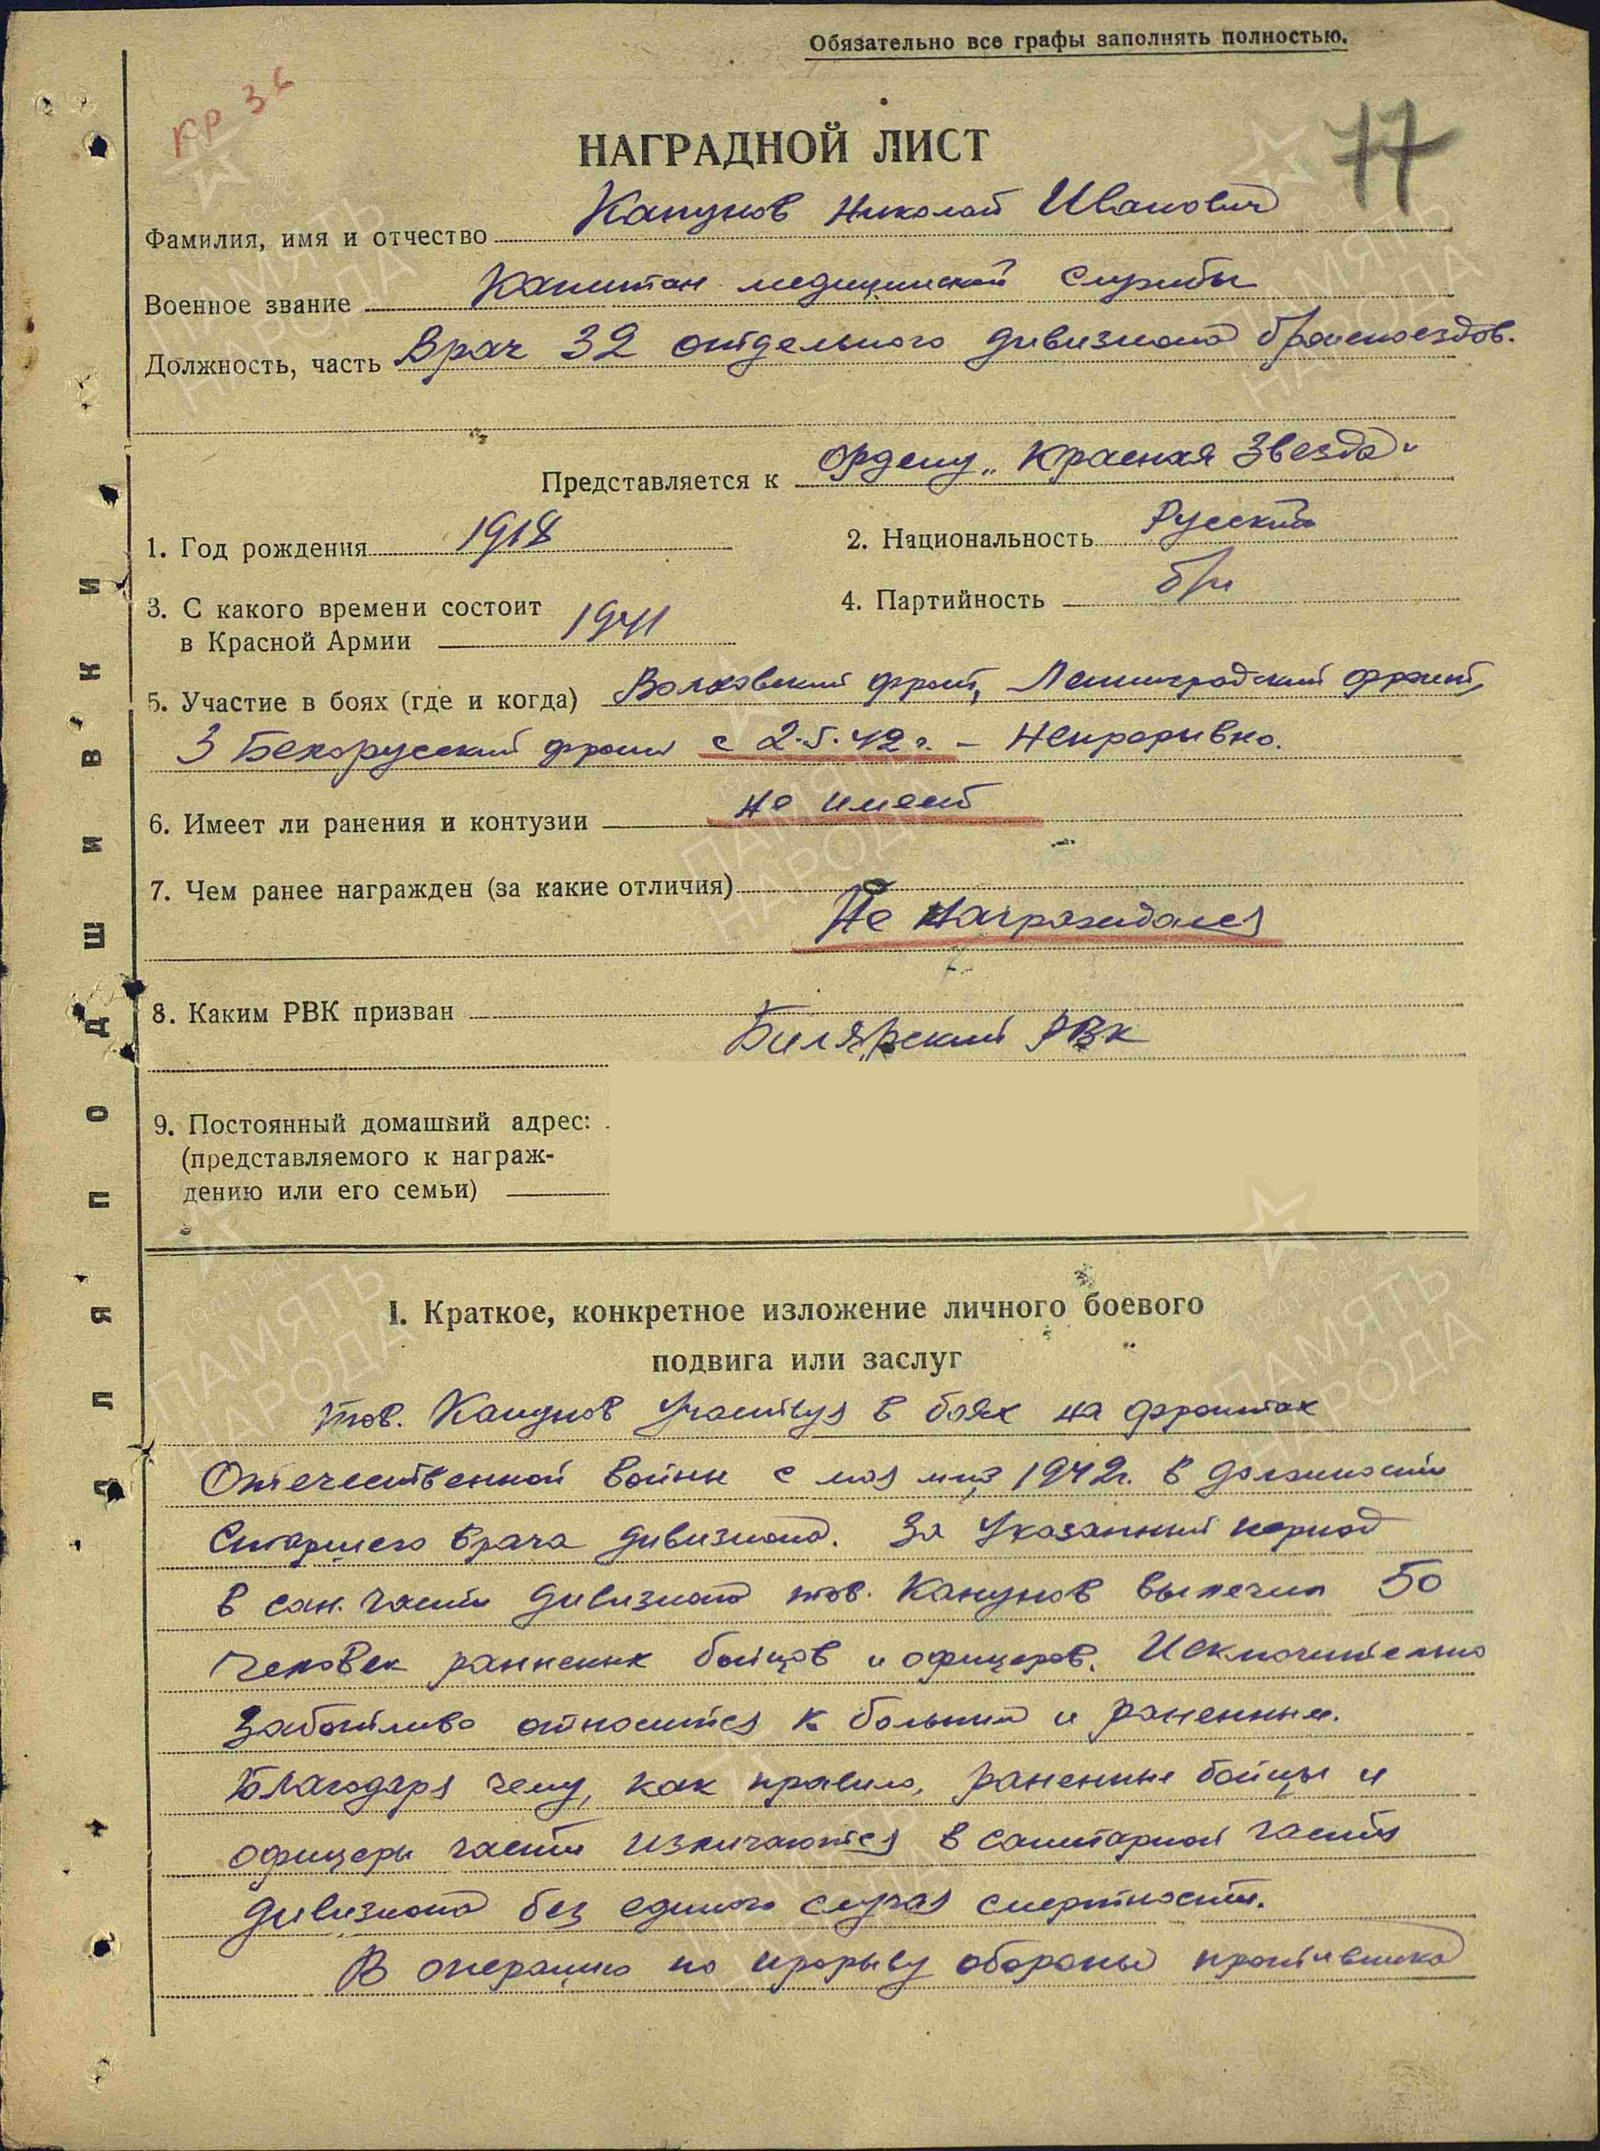 Обязательно все графы заполнять полностью.
кр 3
77
НАГРАДНОЙ ЛИСТ
Фамилия, имя и отчество Канунов Николай Иванович
Военное звание Капитан медицинской службы
Должность, часть Врач 32 отдельного дивизиона бронепоездов.
Представляется к ордену „Красная Звезда“
1. Год рождения 1918
2. Национальность Русский
3. С какого времени состоит
в Красной Армии 1941
4. Партийность б/п
5. Участие в боях (где и когда) Волховский фронт, Ленинградский фронт,
3 Белорусский фронт с 2.5.42 г. – Непрерывно.
6. Имеет ли ранения и контузии не имеет
7. Чем ранее награжден (за какие отличия)
Не награждался
8. Каким РВК призван
Билярский РВК
9. Постоянный домашний адрес:
(представляемого к награж-
дению или его семьи)
I. Краткое, конкретное изложение личного боевого
подвига или заслуг
тов. Канунов участвуя в боях на фронтах
Отечественной войны с мая м-ца 1942г. в должности
Старшего врача дивизиона. За указанный период
в сан. части дивизиона тов. Канунов вылечил 50
человек раненных бойцов и офицеров. Исключительно
заботливо относится к больным и раненным.
Благодаря чему, как правило, раненные бойцы и
офицеры части излечиваются в санитарной части
дивизиона без единого случая смертности.
В операцию по прорыву обороны противника
ДЛЯ ПОДШИВКИ
ПАМЯТЬ НАРОДА